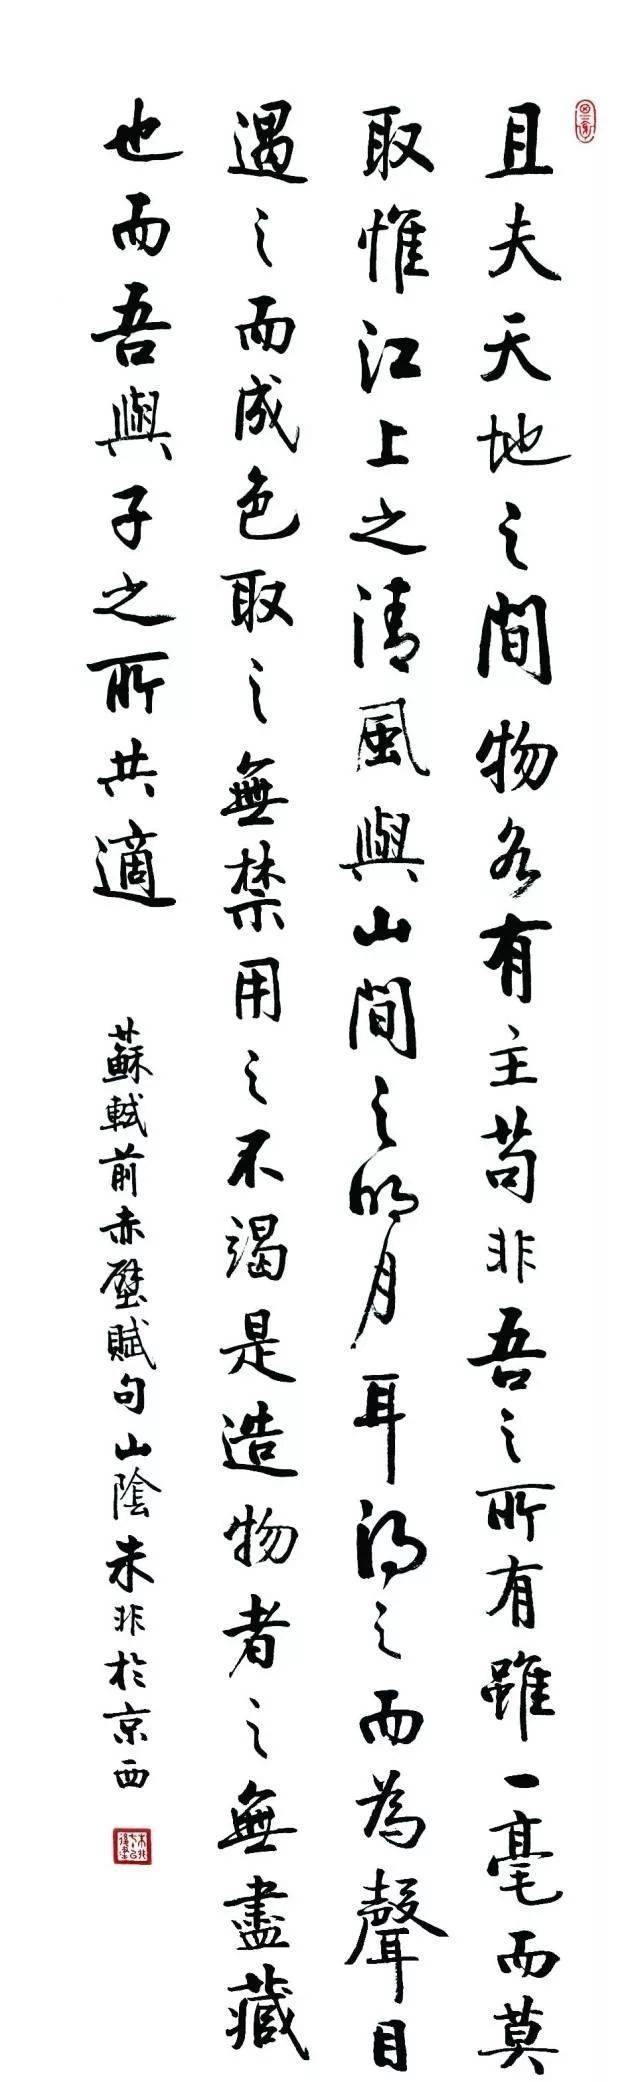 且夫天地之間物各有主苟非吾之所有雖一毫而莫
取惟江上之清風與山間之明月耳得之而為聲目
遇之而成色取之無禁用之不竭是造物者之無盡藏
也而吾與子之所共適
蘇軾前赤壁賦句山陰朱非於京西